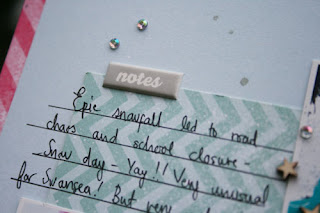 notes
Epic snowfall led to road
chaos and school closure -
Snow day - Yay!! Very unusual
for Swansea! But very